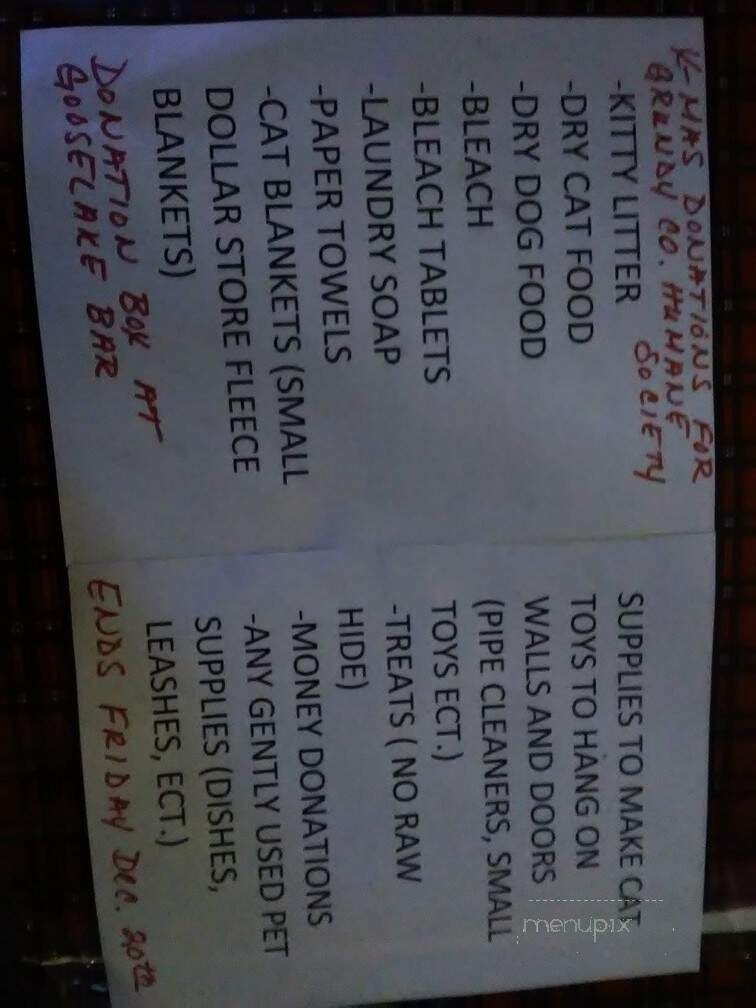 X-MAS DONATIONS FOR
GRUNDY CO. HUMANE
SOCIETY
-KITTY LITTER
-DRY CAT FOOD
-DRY DOG FOOD
-BLEACH
-BLEACH TABLETS
-LAUNDRY SOAP
-PAPER TOWELS
-CAT BLANKETS (SMALL
DOLLAR STORE FLEECE
BLANKETS)
DONATION BOX AT
GOOSELAKE BAR
SUPPLIES TO MAKE CAT
TOYS TO HANG ON
WALLS AND DOORS
(PIPE CLEANERS, SMALL
TOYS ECT.)
-TREATS ( NO RAW
HIDE)
-MONEY DONATIONS
-ANY GENTLY USED PET
SUPPLIES (DISHES,
LEASHES, ECT.)
ENDS FRIDAY DEC. 20th
menupix